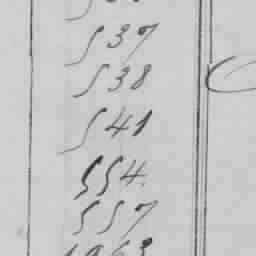 537
538
541
554
557